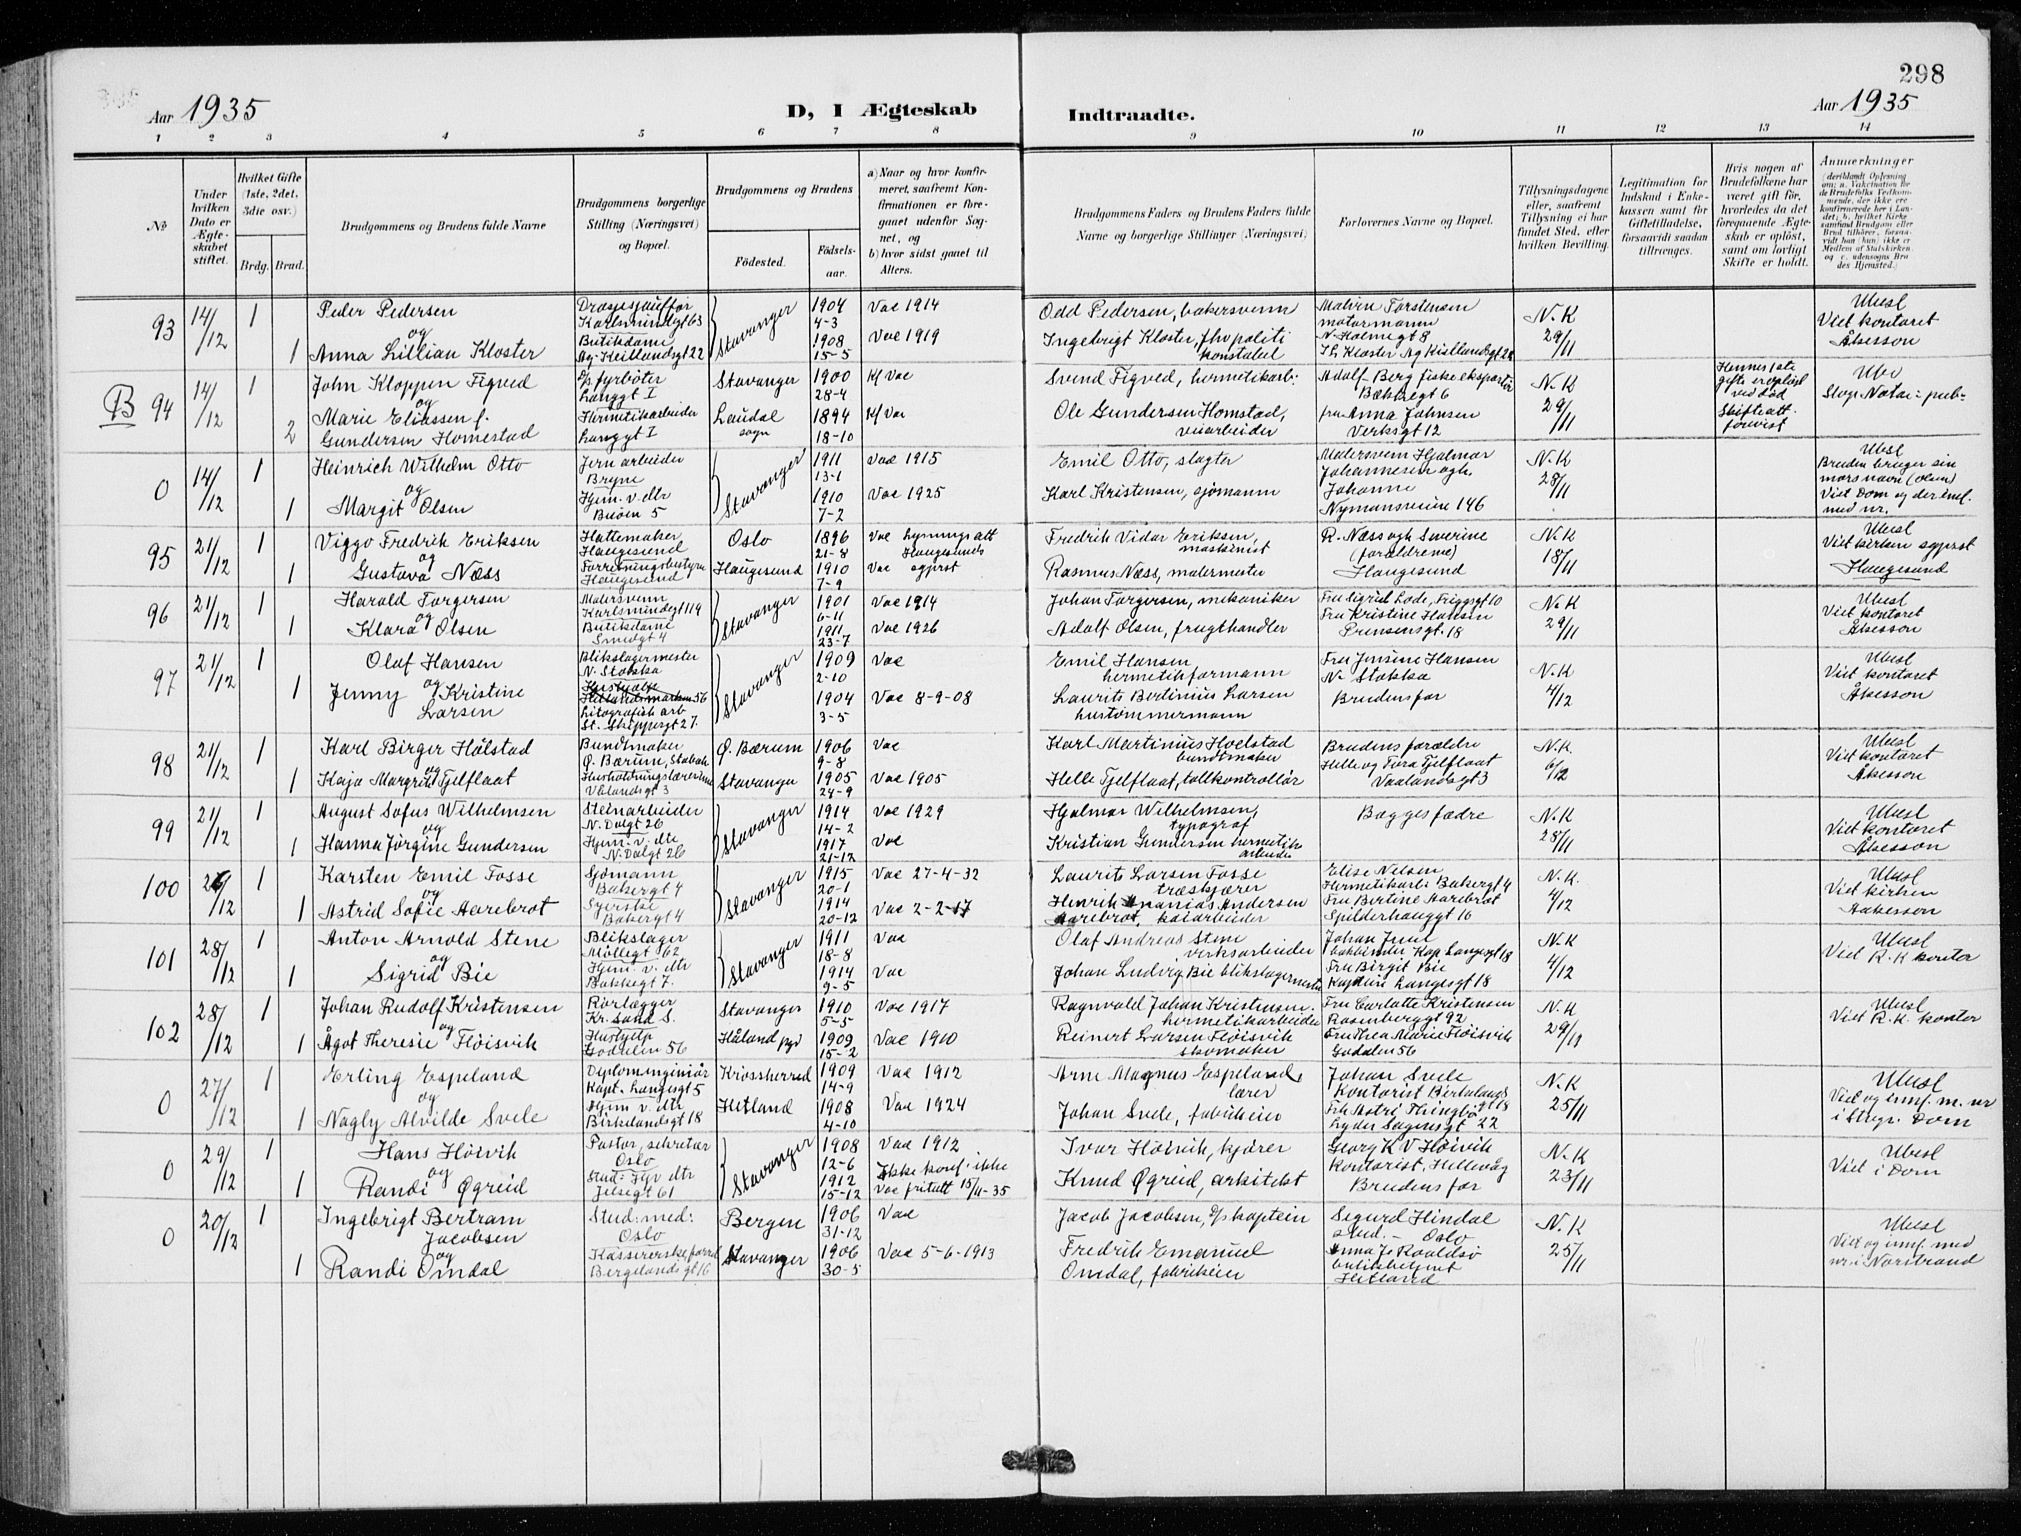 298
Aar 1935
D, I Ægteskab
Indtraadte.
Aar 1935
1 2 3 4 5 6 7 8 9 10 11 12 13 14
No
Under hvilken Dato er Ægteskabet stiftet.
Hvilket Gifte (1ste, 2det, 3die osv.)
Brdg. Brud.
Brudgommens og Brudens fulde Navne
Brudgommens borgerlige Stilling (Næringsvei) og Bopæl.
Brudgommens og Brudens
Fødested.
Fødselsaar.
a) Naar og hvor konfirmeret, saafremt Konfirmationen er foregaaet udenfor Sognet, og
b) hvor sidst gaaet til Alters.
Brudgommens Faders og Brudens Faders fulde Navne og borgerlige Stillinger (Næringsvei)
Forlovernes Navne og Bopæl.
Tillysningsdagene eller, saafremt Tillysning ei har fundet Sted, efter hvilken Bevilling.
Legitimation for Indskud i Enkekassen samt for Giftetilladelse, forsaavidt saadan tiltrænges.
Hvis nogen af Brudefolkene har været gift før, hvorledes da det foregaaende Ægteskab er opløst, samt om lovligt Skifte er holdt.
Anmerkninger
93 14/12 1
Peder Pedersen
og
1 Anna Lillian Kloster
Drosjesjauffør
Karlsmindegt 63
Butikdame
Ag. Keillandsgt 22
Stavanger
1904
4-3
1908
15-5
Vac 1914
Vac 1919
Odd Pedersen, bakersvenn
Ingebrigt Kloster, fhv politi
konstabel
Malvin Torstensen
motormann
N. Holmegt 8
N.K
29/11
Ubesl
Viet kontoret
Åkesson
B 94 14/12 1
John Kloppen Figved
og
2 Marie Eliassen f.
Gundersen Homestad
D/s fyrbøter
Langgt I
Hermetikarbeider
Langgt I
Stavanger
Laudal
sogn
1900
28-4
1894
18-10
K/ Vac
K/ Vac
Svend Figved, hermetikarb:
Ole Gundersen Homstad,
veiarbeider
Adolf Berg fiskeeksportør
Bakkegt 6
fru Anna Johnsen
Verksgt 12
N.K
29/11
Hennes 1ste
gifte er opløst
ved død
Skifteatt.
forevist
Ube
0 14/12 1
Heinrich Wilhelm Otto
og
1 Margit Olsen
Jernarbeider
Bryne
Hjem. v. dtr
Buøen 5
Stavanger
1911
13-1
1910
7-2
Vac 1915
Vac 1925
Emil Otto, slagter
Karl Kristensen, sjømann
Malersvenn Hjalmar
Johannesen ogh.
Johanne
Nymansveien 146
N.K
28/11
Ubesl
Bruden bruger sin
mors navn (Olsen)
Viet Dom og der inf.
med nr.
95 21/12 1
Viggo Fredrik Eriksen
og
1 Gustava Næss
Hattemaker
Haugesund
Forretningsbestyre
Haugesund
Oslo
Haugesund
1896
21-8
1910
7-9
Vac lysningsatt
Haugesunds
Vac sgprst
Fredrik Vidar Eriksen,
maskinist
Rasmus Næss, malermester
R. Næss ogh Severine
(forældrene)
Haugesund
N.K
18/11
Ubesl
Viet kirken sgprst
Haugesund
96 21/12 1
Harald Torgersen
og
1 Klara Olsen
Malersvenn
Karlsmindegt 119
Butikdame
Smedgt 4
Stavanger
1901
6-11
1911
23-7
Vac 1914
Vac 1926
Johan Torgersen, mekaniker
Adolf Olsen, frugthandler
Fru Sigrid Lode, Friggsgt 10
Fru Kristine Hansen
Prinsensgt. 18
N.K
29/11
Ubesl
Viet kontoret
Åkesson
97 21/12 1
Olaf Hansen
og
1 Jenny Kristine
Larsen
Blikslagermester
N. Stokka
Hushjelp
Hetlandsmarken 56
Litografisk arb
St. Skippergt 27.
Stavanger
1909
2-10
1904
3-5
Vac
Vac 8-9-08
Emil Hansen,
hermetikformann
Laurits Bertinius Larsen
hustømmermann
Fru Jensine Hansen
N. Stokka
Brudens far
N.K
4/12
Ubesl
Viet kontoret
Åkesson
98 21/12 1
Karl Birger Hølstad
og
1 Kaja Margrit Tjelflaat
Bundtmaker
Ø. Bærum, Stabæk
Husholdningslærerinne
Vålandsgt 3
Ø. Bærum
Stavanger
1906
9-8
1905
24-9
Vac
Vac 1905
Karl Martinius Hoelstad
bundtmaker
Helle Tjelflaat, tollkontrollør
Brudens forældre
Helle og Tora Tjelflaat
Vaalandsgt 3
N.K.
6/12
Ubesl
Viet kontoret
Åkesson
99 21/12 1
August Sofus Wilhelmsen
og
1 Hanna Jørgine Gundersen
Steinarbeider
N. Dalgt 26
Hjem. v. dtr
N. Dalgt 26
Stavanger
1914
14-2
1917
21-12
Vac 1929
Vac
Hjalmar Wilhelmsen,
typograf
Kristian Gundersen hermetik
arbeider
Begges fædre
N.K
28/11
Ubesl
Viet kontoret
Åkesson
100 /12 1
Karsten Emil Fosse
og
1 Astrid Sofie Aarebrot
Sjømann
Bakergt 4
Syerske
Bakergt 4
Stavanger
1915
20-1
1914
20-12
Vac 27-4-32
Vac 2-2-17
Laurits Larsen Fosse
træskjærer
Henrik Ananias Andersen
Aarebrot, kaiarbeider
Elise Nelsen
Hermetikarb: Bakergt 4
Fru Bertine Aarebrot
Spilderhauggt 16
N.K.
4/12
Ubesl
Viet kirken
Aakesson
101 28/12 1
Anton Arnold Stene
og
1 Sigrid Bie
Blikslager
Møllegt 62
Hjem. v. dtr
Bakkegt 7.
Stavanger
1911
18-8
1914
9-5
Vac
Vac
Olaf Andreas Stene
verksarbeider
Johan Ludvig Bie blikslagermester
Johan Juul
bokbinder Kap Langesgt 18
Fru Birgit Bie
Kaptein Langesgt 18
N.K
4/12
Ubesl
Viet R.K. kontor
102 28/12 1
Johan Rudolf Kristensen
og
1 Ågot Theresie Fløisvik
Rørlægger
Kr. Sand S.
Hushjelp
Godalen 56
Stavanger
Håland pgd
1910
5-5
1909
15-2
Vac 1917
Vac 1910
Ragnvald Johan Kristensen.
hermetikarbeider
Reinert Larsen Fløisvik
skomaker
Fru Carlotte Kristensen
Rosenberggt 92
Fru Thea Marie Fløisvik
Godalen 56
N.K
29/11
Ubesl
Viet R.K. kontor
0 27/12 1
Erling Espeland
og
1 Nagly Alvilde Svele
Diplomingeniør
Kapt. Langesgt 5
Hjem v. dtr
Birkelandsgt 18
Krossherred
Hetland
1909
14-9
1908
4-10
Vac 1912
Vac 1924
Arne Magnus Espeland,
lærer
Johan Svele, fabrikeier
Johan Svele
Kontorist Birkelands
gt 18
Lyder Sagensgt 22
N.K
25/11
Ubesl
Viet og innf. m. nr
i Stvgr. Dom
0 29/12 1
Hans Høivik
og
1 Randi Øgreid
Pastor, sekretær
Oslo
Stud. Fyr dtr
Jelsegt 61
Stavanger
1908
12-6
1912
15-12
Vac 1912
Ikke konf. ikke
Vac fritatt 15/11-35
Ivar Høivik, kjører
Knud Øgreid, arkitekt
Georg K V Høivik
kontorist, Hillevåg
Brudens far
N.K
23/11
Ubesl
Viet i Dom
0 20/12 1
Ingebrigt Bertram
Jacobsen
og
1 Randi Omdal
Stud: med:
Oslo
Kassererske, forret
Bergelandsgt 16
Bergen
Stavanger
1906
31-12
1906
30-5
Vac
Vac 5-6-1913
Jacob Jacobsen, D/s kaptein
Fredrik Emanuel
Omdal, fabrikeier
Sigurd Hindal
stud. - Oslo
Anna J. Roaldsø
butikbetjent
Hetland
N.K
25/11
Ubesl
Viet og innf med
nr. i Norstrand